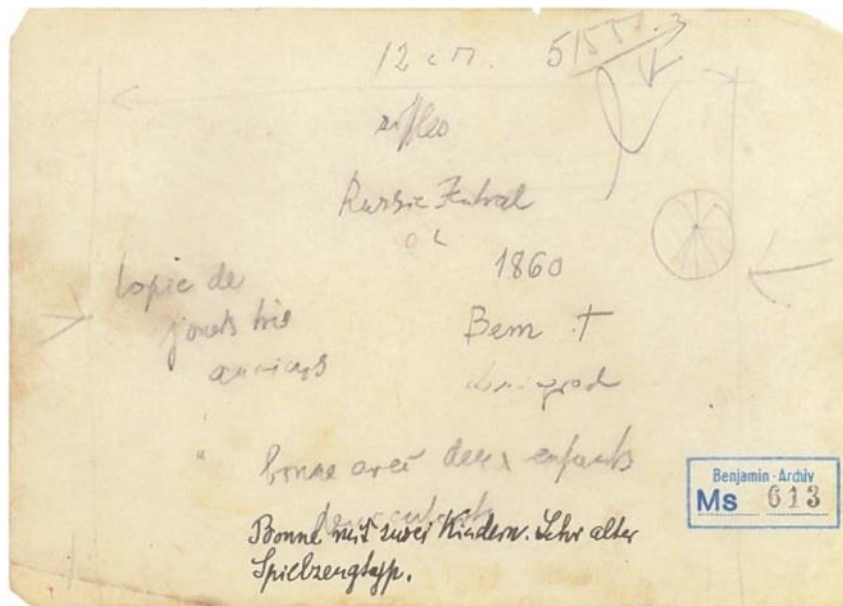 12 cm. 51551.3
Russie Zentral
1860
copie de
jouets tres
anciens
Bem †
Leningrad
bonne avec deux enfants
Bonne mit zwei Kindern. Sehr alter
Spielzeugtyp.
Benjamin-Archiv
Ms 613